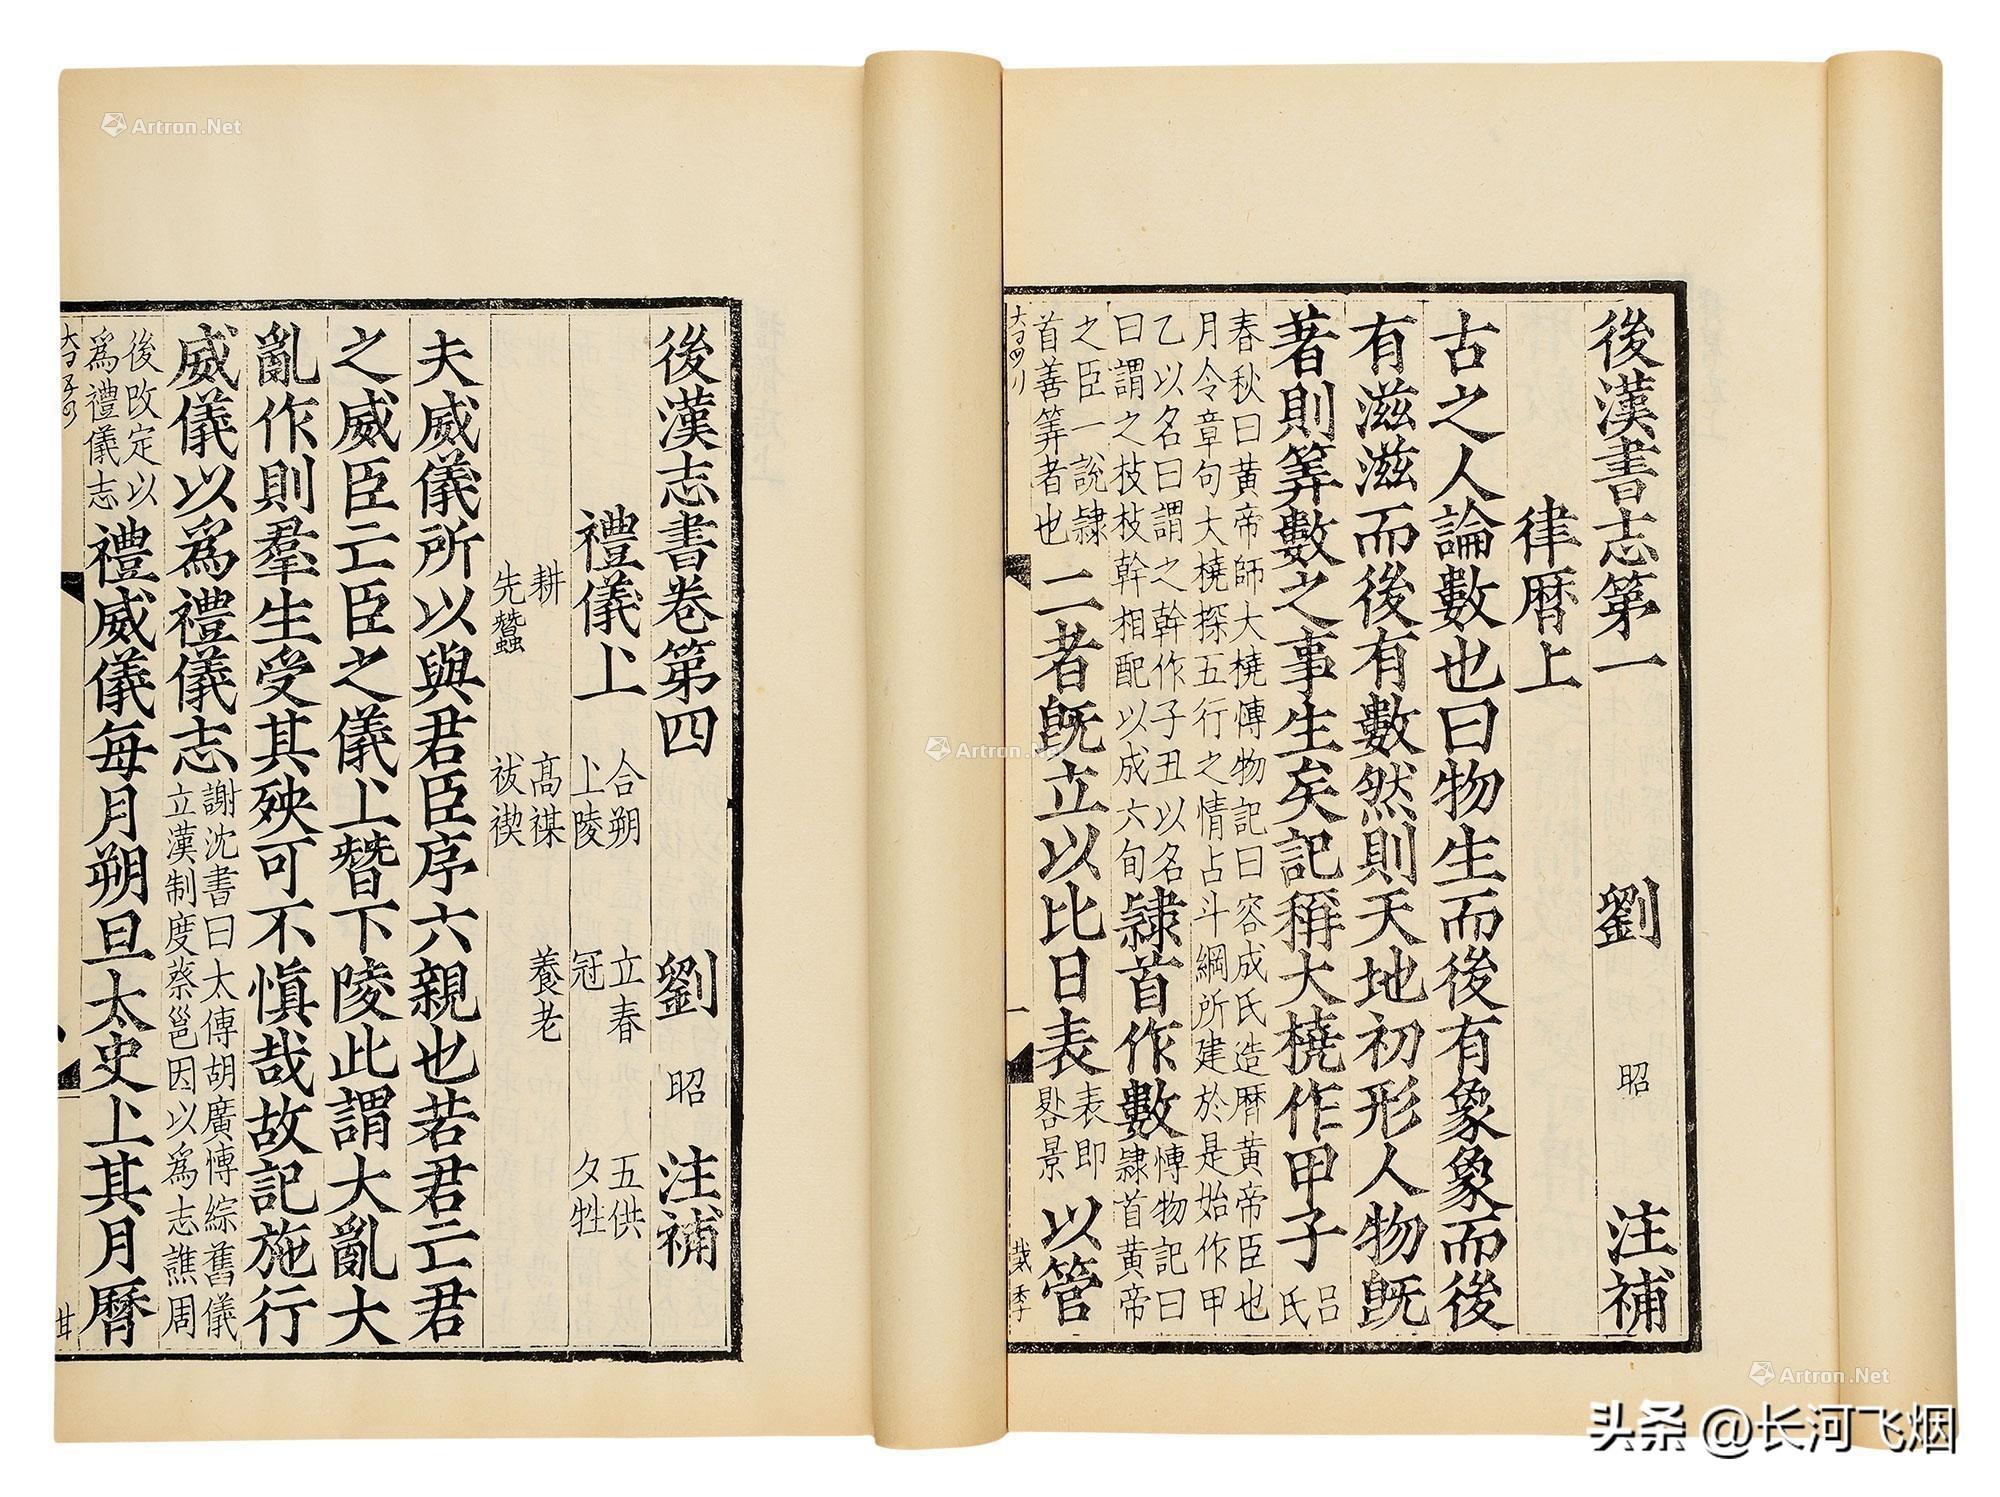 後漢書志第一
劉 昭 注補
律暦上
古之人論數也曰物生而後有象象而後
有滋滋而後有數然則天地初形人物旣
著則筭數之事生矣記稱大橈作甲子呂氏
春秋曰黄帝師大橈愽物記曰容成氏造暦黄帝臣也
月令章句大橈探五行之情占斗綱所建於是始作甲
乙以名日謂之幹作子丑以名
日謂之枝枝幹相配以成六旬隷首作數愽物記曰
隷首黄帝
之臣一說隷
首善筭者也二者旣立以比日表表即
晷景以管
後漢志書卷第四
劉 昭 注補
禮儀上
合朔 立春 五供
上陵 冠 夕牲
耕 髙禖 養老
先蠶 祓禊
夫威儀所以與君臣序六親也若君亡君
之威臣亡臣之儀上替下陵此謂大亂大
亂作則羣生受其殃可不慎哉故記施行
威儀以爲禮儀志謝沈書曰太傅胡廣愽綜舊儀
立漢制度蔡邕因以爲志譙周
後改定以
爲禮儀志禮威儀每月朔旦太史上其月曆
Artron.Net
Artron.Net
Artron.Net
头条 @长河飞烟